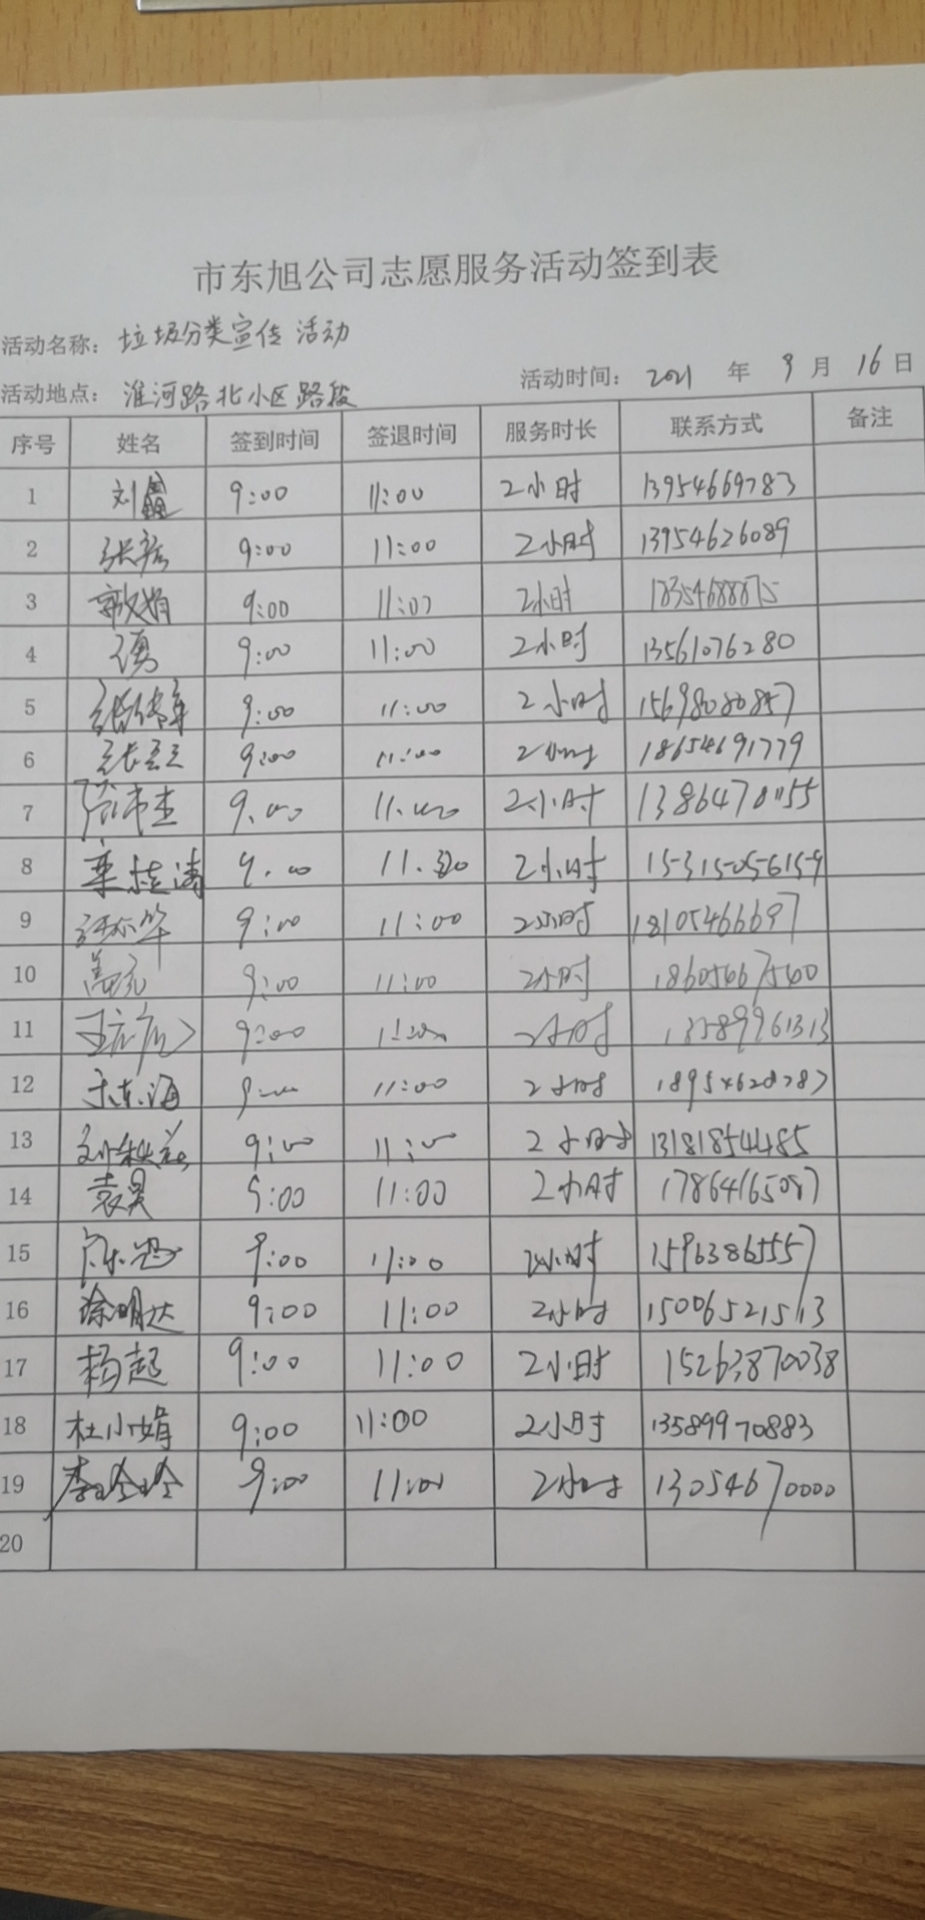 市东旭公司志愿服务活动签到表
活动名称：垃圾分类宣传活动
活动地点：淮河路北小区路段 活动时间：2021 年 9 月 16 日
序号 姓名 签到时间 签退时间 服务时长 联系方式 备注
1 刘鑫 9:00 11:00 2小时 13954669783
2 9:00 11:00 2小时 13954626089
3 郭文娟 9:00 11:00 2小时 18354688875
4 9:00 11:00 2小时 13561076280
5 9:00 11:00 2小时 15698080857
6 9:00 11:00 2小时 18654691779
7 9:00 11:00 2小时
8 栾桂涛 9:00 2小时 15315056159
9 9:00 11:00 2小时 18105466697
10 9:00 11:00 2小时 18605467540
11 9:00 11:00 2小时 13589961313
12 宋东海 9:00 11:00 2小时
13 9:00 11:00 2小时 13181854485
14 袁昊 9:00 11:00 2小时 17864165087
15 9:00 11:00 2小时 15963865557
16 徐明达 9:00 11:00 2小时 15006521513
17 杨超 9:00 11:00 2小时 15263870038
18 杜小娟 9:00 11:00 2小时 13589970883
19 李玲玲 9:00 11:00 2小时 13054670000
20